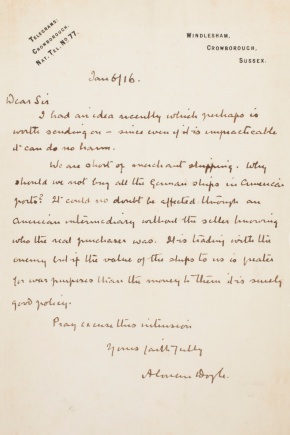 TELEGRAMS:
CROWBOROUGH.
NAT. TEL. No. 77.
WINDLESHAM,
CROWBOROUGH,
SUSSEX.
Jan 6/16.
Dear Sir
I had an idea recently which perhaps is
worth sending on – since even if it is impracticable
it can do no harm.
We are short of merchant shipping. Why
should we not buy all the German ships in American
ports? It could no doubt be effected through an
American intermediary without the seller knowing
who the real purchaser was. It is trading with the
enemy but if the value of the ships to us is greater
for war purposes than the money to them it is surely
good policy.
Pray excuse this intrusion
Yours faithfully
A Conan Doyle.